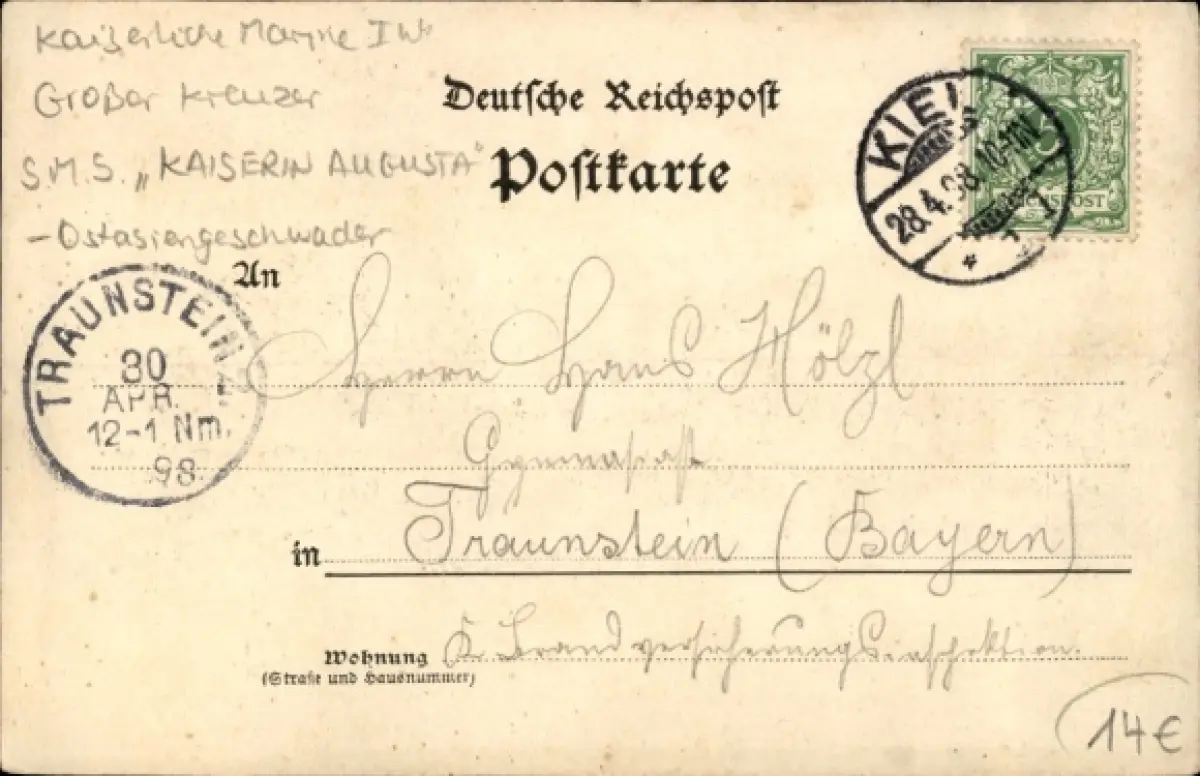 Kaiserliche Marine I WK
Großer Kreuzer
S.M.S. „KAISERIN AUGUSTA"
- Ostasiengeschwader
Deutsche Reichspost
Postkarte
KIEL
28.4.98. 10-11N
* 1
REICHSPOST
An
TRAUNSTEIN
30
APR.
12-1 Nm.
98.
Herrn Hans Hölzl
Gymnasiast
in Traunstein (Bayern)
Wohnung K. Brandversicherungsinspektion.
(Straße und Hausnummer)
14€